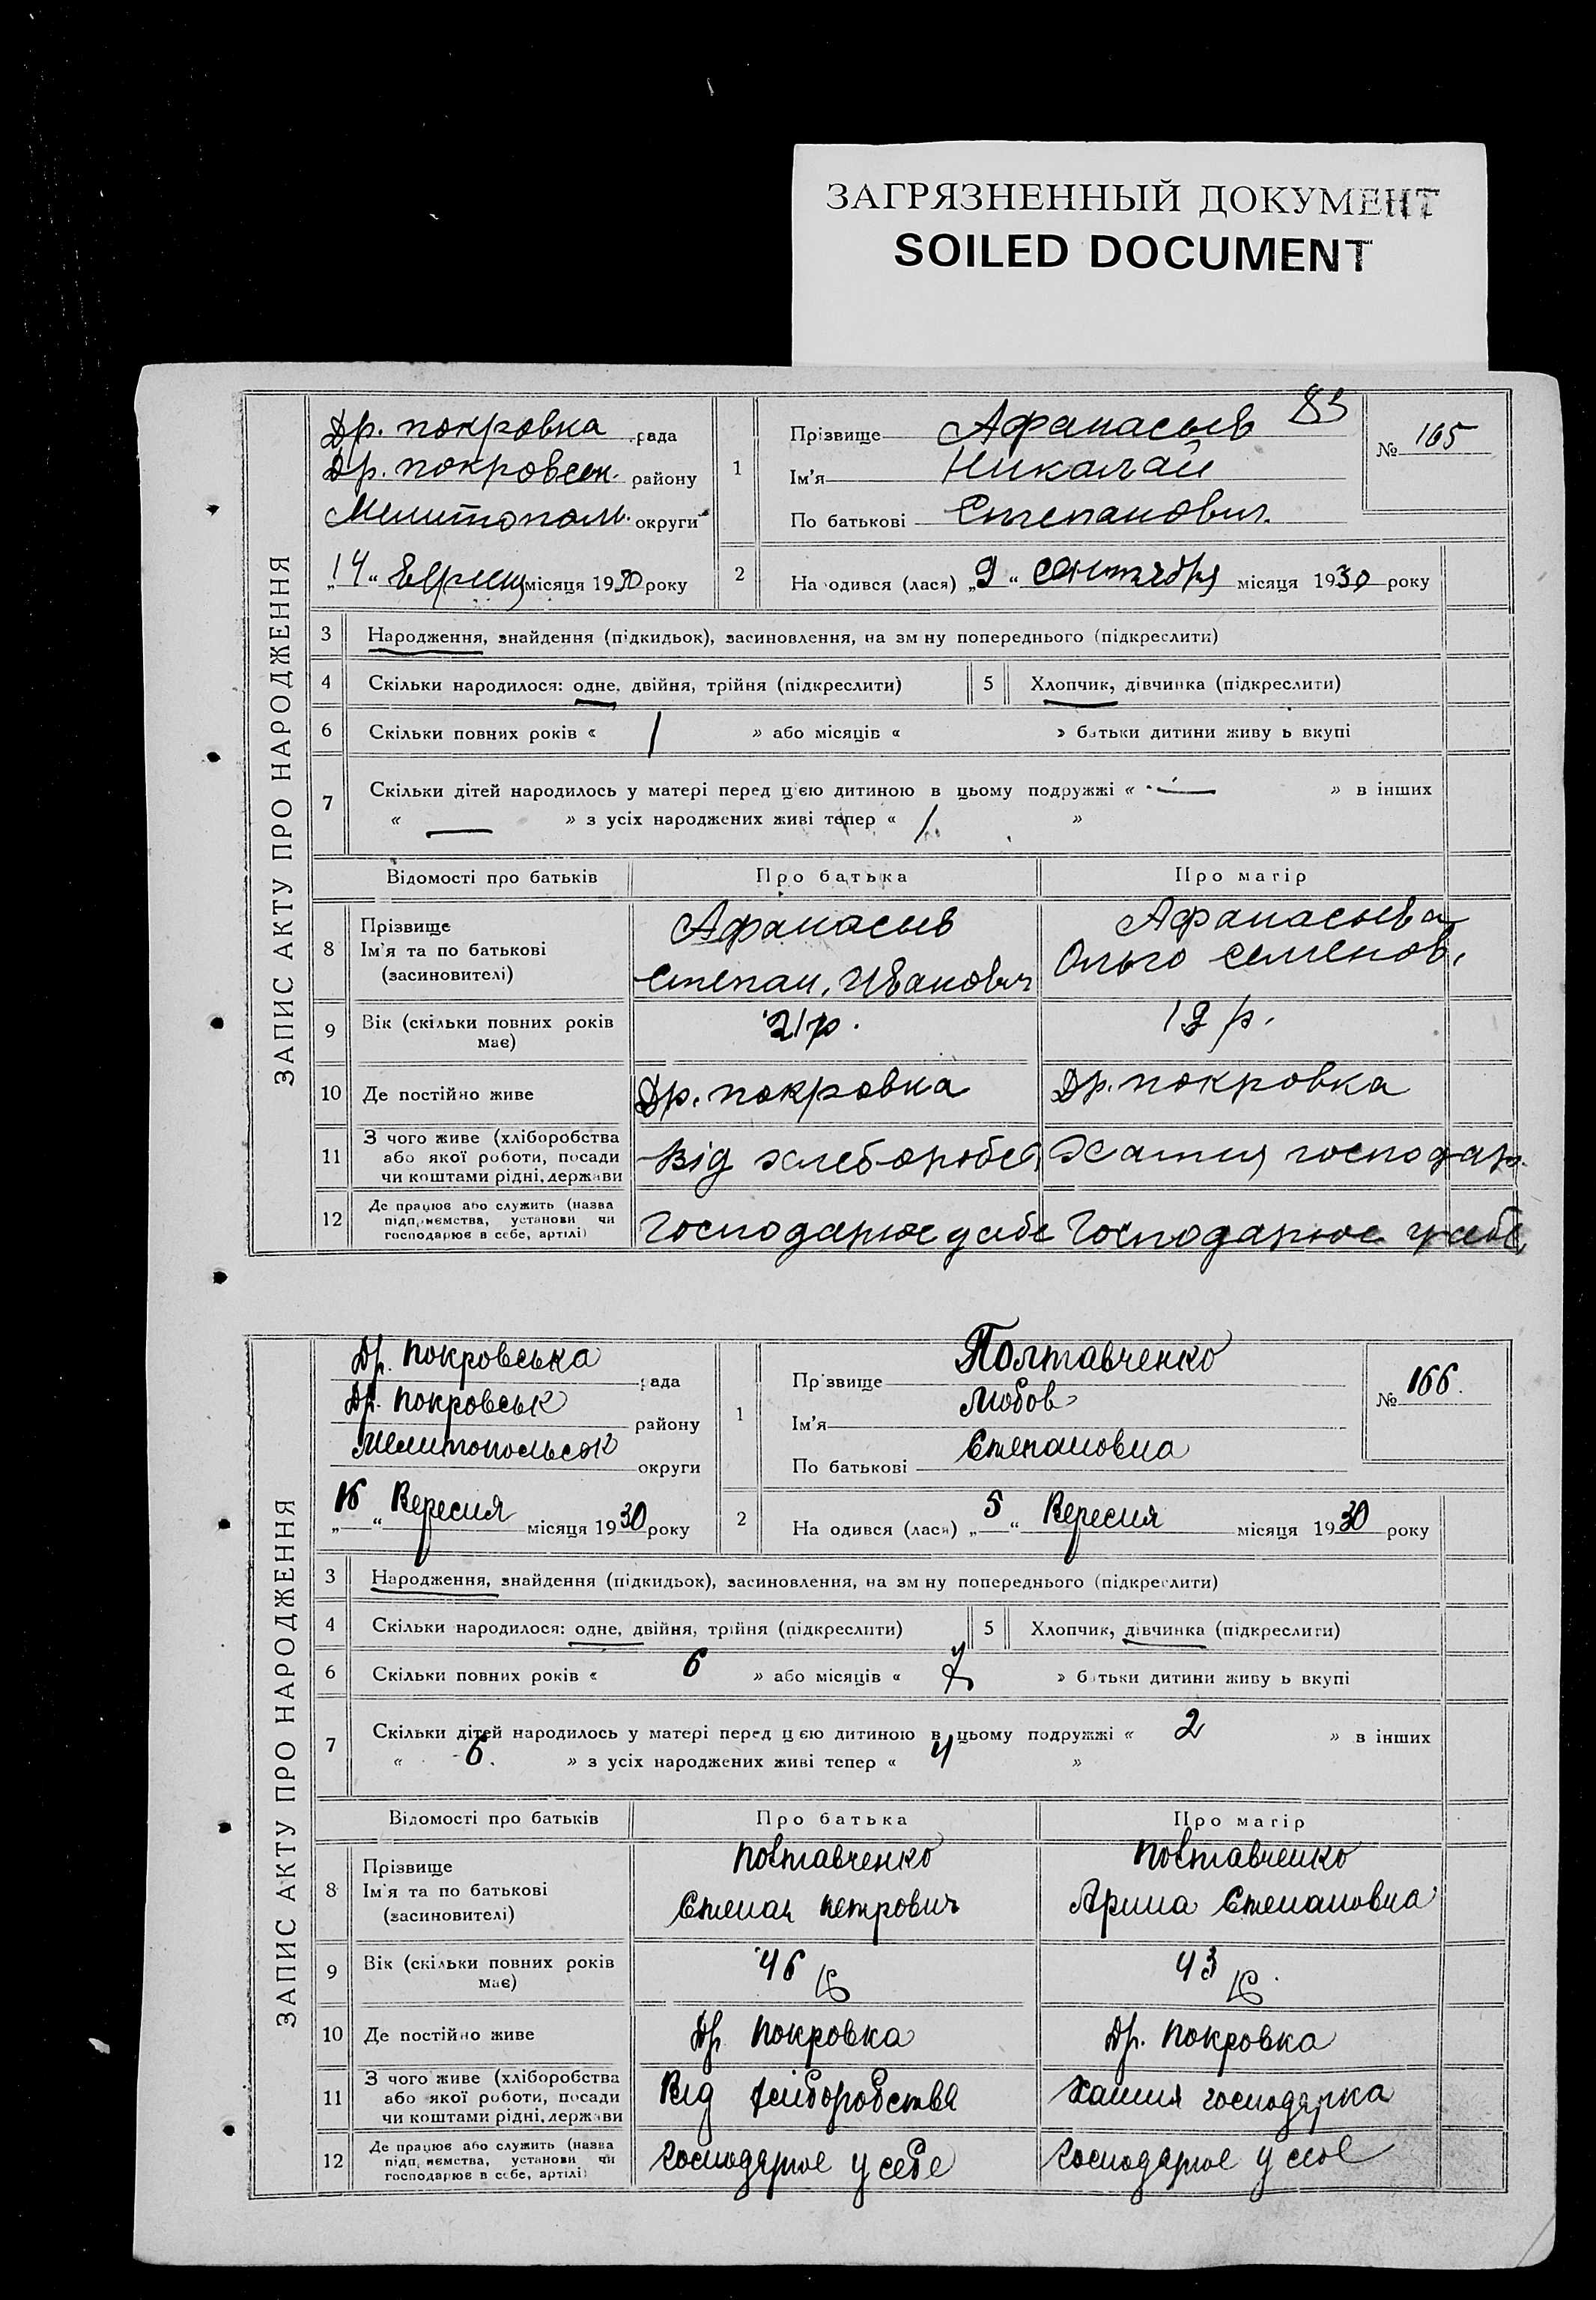 ЗАГРЯЗНЕННЫЙ ДОКУМЕНТ
SOILED DOCUMENT
83
ЗАПИС АКТУ ПРО НАРОДЖЕННЯ
Др. покровка рада
Др. покровск. району
Мелитополь. округи
„14“ місяця 1930 року
1
Прізвище Афанасьев
Ім'я Николай
По батькові Степанович.
№ 165
2
На одився (лася) „9“ сентября місяця 1930 року
3 Народження, знайдення (підкидьок), засиновлення, на зм ну попереднього (підкреслити)
4 Скільки народилося: одне, двійня, трійня (підкреслити)
5 Хлопчик, дівчинка (підкреслити)
6 Скільки повних років « 1 » або місяців « » батьки дитини живу ь вкупі
7 Скільки дітей народилось у матері перед цією дитиною в цьому подружжі « — » в інших
« — » з усіх народжених живі тепер « 1. »
Відомості про батьків
Про батька
Про матір
8 Прізвище
Ім'я та по батькові
(засиновителі)
Афанасьев
Степан, Иванович
Афанасьева
Ольга Семенов.
9 Вік (скільки повних років
має)
21 р.
19 р.
10 Де постійно живе
Др. покровка
Др. покровка
11 З чого живе (хліборобства
або якої роботи, посади
чи коштами рідні, держави
Від хлеборобст
Хатня господар.
12 Де працює або служить (назва
підприємства, установи чи
господарює в себе, артілі)
Господарює у себе
Господарює у себе
ЗАПИС АКТУ ПРО НАРОДЖЕННЯ
Др. покровська рада
Др. покровськ району
Мелитопольськ округи
„16“ Вересня місяця 1930 року
1
Пр звище Полтавченко
Ім'я Любов
По батькові Степановна
№ 166.
2
На одився (лася) „5“ Вересня місяця 1930 року
3 Народження, знайдення (підкидьок), засиновлення, на зм ну попереднього (підкреслити)
4 Скільки народилося: одне, двійня, трійня (підкреслити)
5 Хлопчик, дівчинка (підкреслити)
6 Скільки повних років « 6 » або місяців « » батьки дитини живу ь вкупі
7 Скільки дітей народилось у матері перед цією дитиною в цьому подружжі « 2 » в інших
« 6. » з усіх народжених живі тепер « 4 »
Відомості про батьків
Про батька
Про матір
8 Прізвище
Ім'я та по батькові
(засиновителі)
Полтавченко
Степан петрович
Полтавченко
Арина Степановна
9 Вік (скільки повних років
має)
46
43
10 Де постійно живе
Др. покровка
Др. покровка
11 З чого живе (хліборобства
або якої роботи, посади
чи коштами рідні, держави
Від хліборобства
Хатня господарка
12 Де працює або служить (назва
підприємства, установи чи
господарює в себе, артілі)
Господарює у себе
Господарює у себе